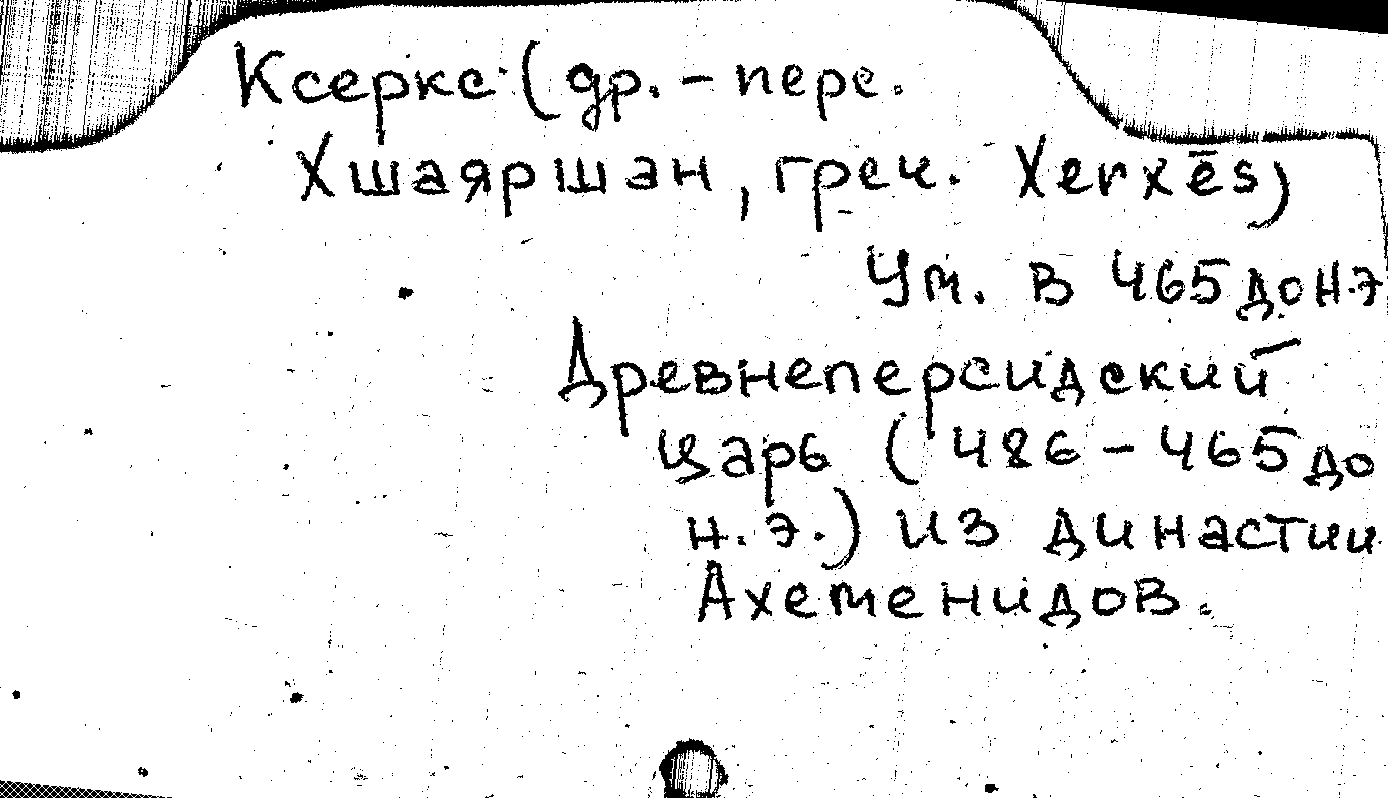 Ксеркс (др. - перс.
Хшаяршан, греч. Xerxēs)
Ум. в 465 до н.э
Древнеперсидский
царь (486 - 465 до
н.э.) из династии
Ахеменидов.